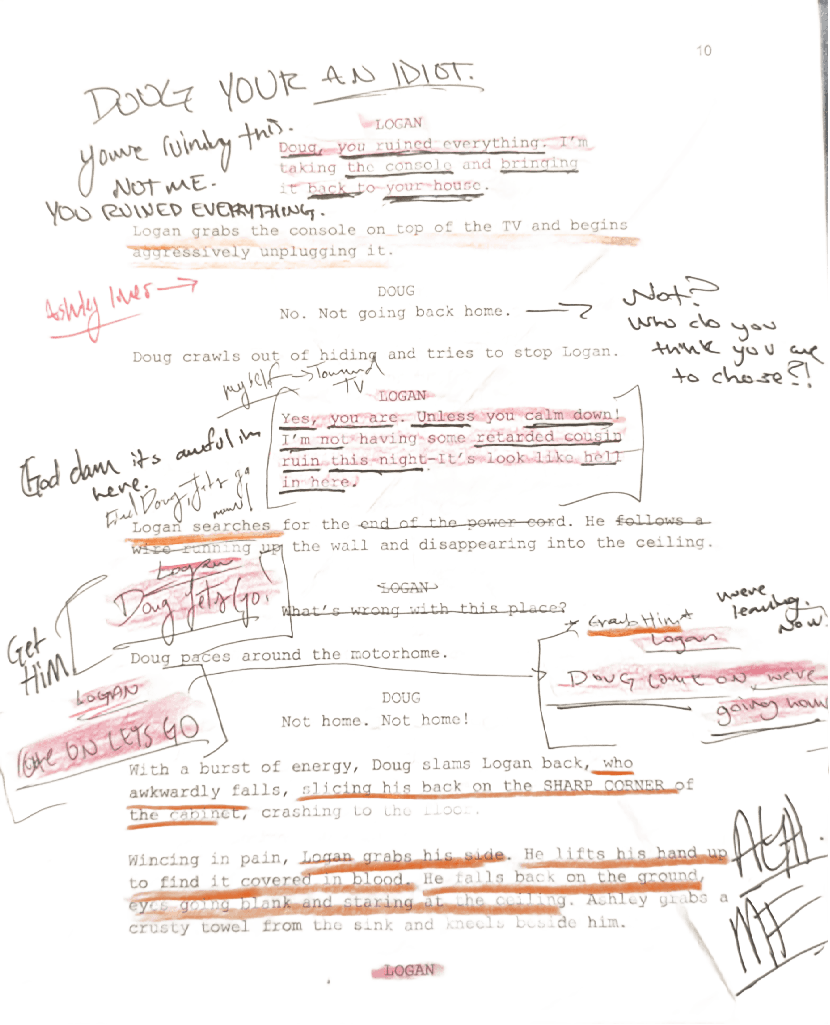 10
DOUG YOUR AN IDIOT.
LOGAN
Doug, you ruined everything. I'm
taking the console and bringing
it back to your house.
you're ruining this.
NOT ME.
YOU RUINED EVERYTHING.
Logan grabs the console on top of the TV and begins
aggressively unplugging it.
Ashley lines →
DOUG
No. Not going back home. →
Not?
Who do you
think you are
to chose?!
Doug crawls out of hiding and tries to stop Logan.
myself → Toward
TV
LOGAN
Yes, you are. Unless you calm down!
I'm not having some retarded cousin
ruin this night-It's look like hell
in here.
God dam it's awful in
here.
Doug, lets go
now!
Logan searches for the end of the power cord. He follows a
wire running up the wall and disappearing into the ceiling.
Logan
Doug lets go.
LOGAN
What's wrong with this place?
Get
HIM
Grab Him
were
leaving.
Now!
Logan
DOUG come on, we're
going now
Doug paces around the motorhome.
LOGAN
COME ON LETS GO
DOUG
Not home. Not home!
With a burst of energy, Doug slams Logan back, who
awkwardly falls, slicing his back on the SHARP CORNER of
the cabinet, crashing to the floor.
Wincing in pain, Logan grabs his side. He lifts his hand up
to find it covered in blood. He falls back on the ground,
eyes going blank and staring at the ceiling. Ashley grabs a
crusty towel from the sink and kneels beside him.
ME
LOGAN